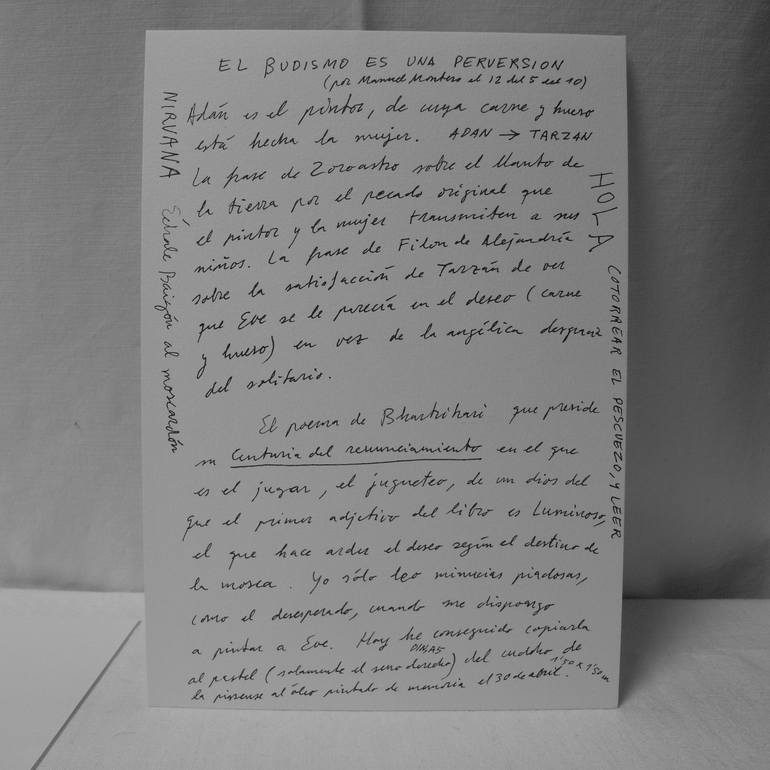 EL BUDISMO ES UNA PERVERSION
(por Manuel Montero el 12 del 5 del 10)
Adán es el pintor, de cuya carne y hueso
está hecha la mujer. ADAN → TARZAN
La frase de Zoroastro sobre el llanto de
la tierra por el pecado original que
el pintor y la mujer transmiten a sus
niños. La frase de Filon de Alejandría
sobre la satisfacción de Tarzán de ver
que Eve se le parecía en el deseo (carne
y hueso) en vez de la angélica
del solitario.
El poema de Bhartrihari que preside
su Centuria del renunciamiento en el que
es el jugar, el jugueteo, de un dios del
que el primer adjetivo del libro es Luminoso,
el que hace arder el deseo según el destino de
la mosca. Yo sólo leo minucias piadosas,
como el desesperado, cuando me dispongo
a pintar a Eve. Hoy he conseguido copiarla
DINA5
al pastel (solamente el seno derecho) del cuadro de
1'50 x 1'50 m
la al óleo pintado de memoria el 30 de abril.
NIRVANA Echale Baigón al moscardón
HOLA COTORREAR EL PESCUEZO, Y LEER